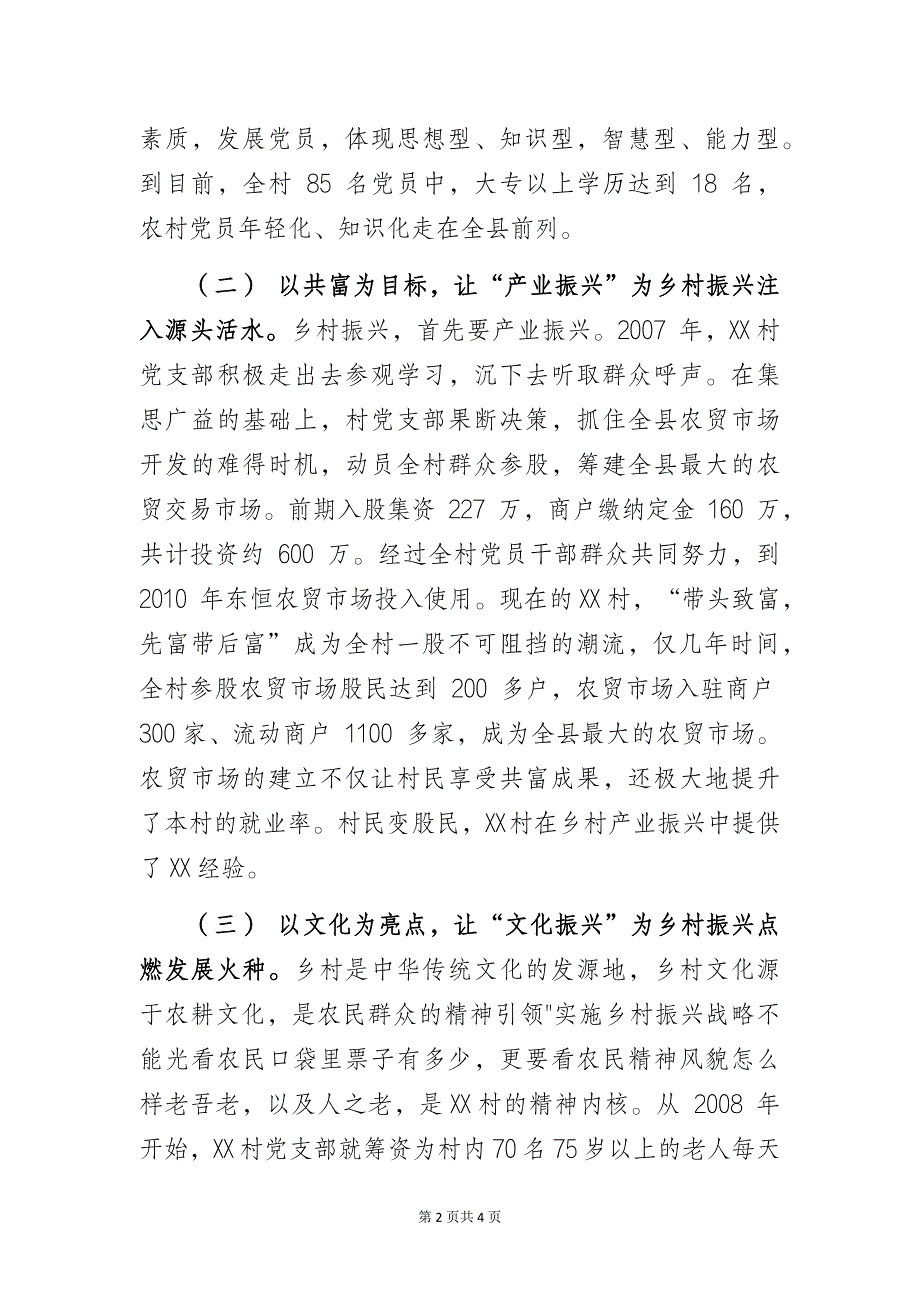 素质，发展党员，体现思想型、知识型，智慧型、能力型。
到目前，全村 85 名党员中，大专以上学历达到 18 名，
农村党员年轻化、知识化走在全县前列。
（二） 以共富为目标，让“产业振兴”为乡村振兴注
入源头活水。乡村振兴，首先要产业振兴。2007 年，XX村
党支部积极走出去参观学习，沉下去听取群众呼声。在集
思广益的基础上，村党支部果断决策，抓住全县农贸市场
开发的难得时机，动员全村群众参股，筹建全县最大的农
贸交易市场。前期入股集资 227 万，商户缴纳定金 160 万，
共计投资约 600 万。经过全村党员干部群众共同努力，到
2010 年东恒农贸市场投入使用。现在的XX村，“带头致富，
先富带后富”成为全村一股不可阻挡的潮流，仅几年时间，
全村参股农贸市场股民达到 200 多户，农贸市场入驻商户
300家、流动商户 1100 多家，成为全县最大的农贸市场。
农贸市场的建立不仅让村民享受共富成果，还极大地提升
了本村的就业率。村民变股民，XX村在乡村产业振兴中提供
了XX经验。
（三） 以文化为亮点，让“文化振兴”为乡村振兴点
燃发展火种。乡村是中华传统文化的发源地，乡村文化源
于农耕文化，是农民群众的精神引领"实施乡村振兴战略不
能光看农民口袋里票子有多少，更要看农民精神风貌怎么
样老吾老，以及人之老，是XX村的精神内核。从 2008 年
开始，XX村党支部就筹资为村内70名75岁以上的老人每天
第 2 页共 4 页